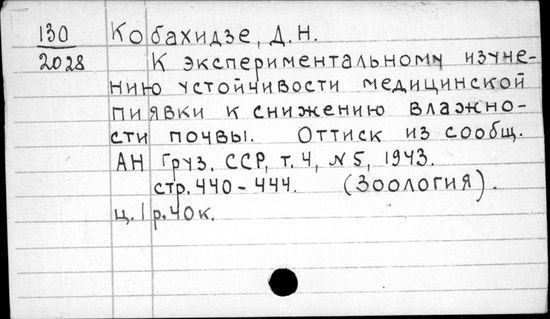 130 Кобахидзе, Д.Н.
2028 К экспериментальному изуче-
нию устойчивости медицинской
пиявки к снижению влажно-
сти почвы. Оттиск из сообщ.
АН Груз. ССР, т. 4, №5, 1943.
стр. 440-444. (Зоология).
ц. 1 р. 40 к.